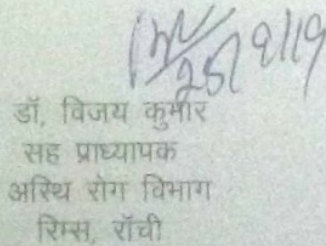 25/9/19
डॉ. विजय कुमार
सह प्राध्यापक
अस्थि रोग विभाग
रिम्स, राँची